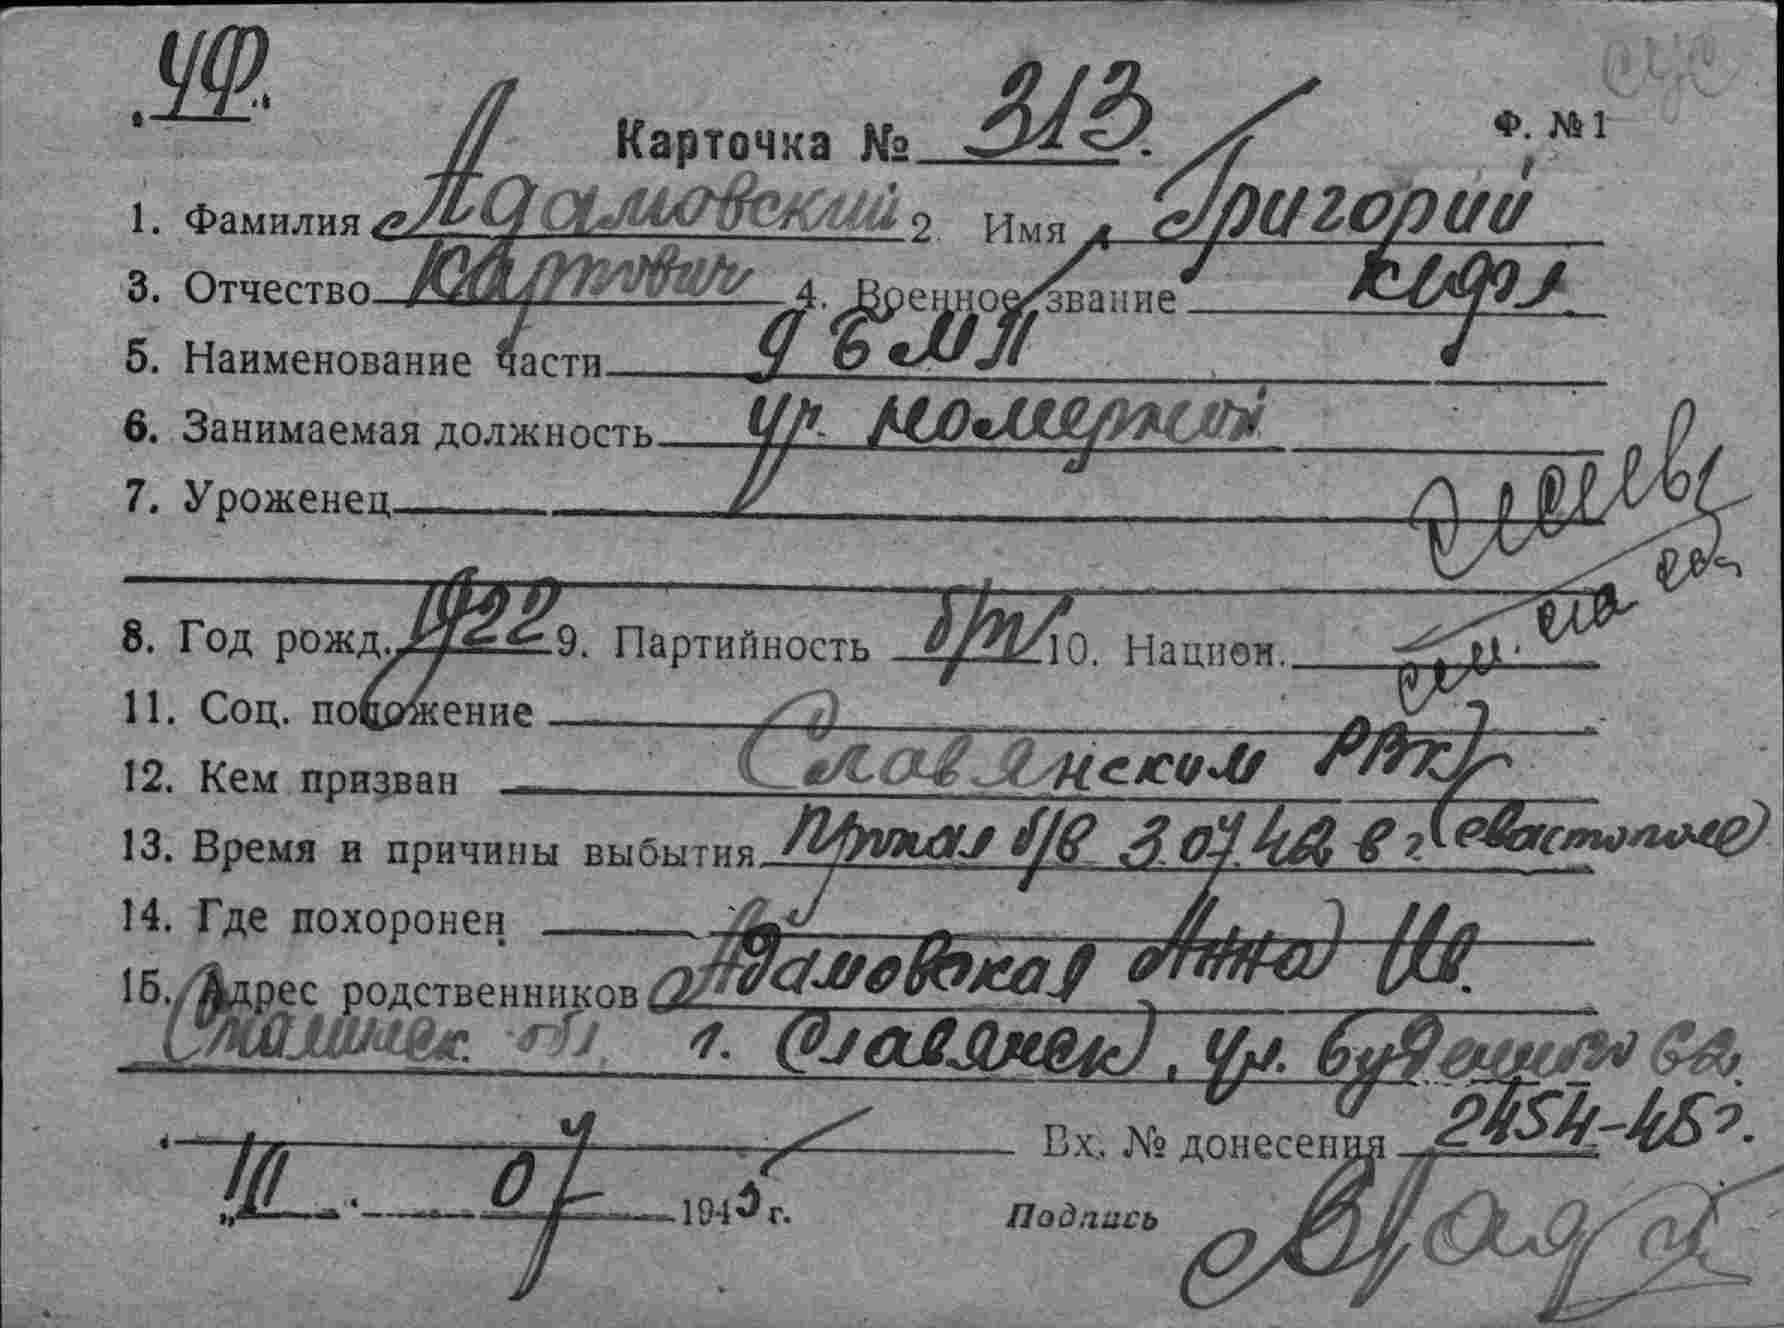 ЧФ.
Карточка № 313.
Ф. № 1
1. Фамилия Адамовский 2. Имя Григорий
3. Отчество Карпович 4. Военное звание кр-фл.
5. Наименование части 9 БМП
6. Занимаемая должность ур. номерной
7. Уроженец
8. Год рожд. 1922 9. Партийность б/п 10. Национ.
11. Соц. положение
12. Кем призван Славянским РВК
13. Время и причины выбытия Пропал б/в 3.07.42 в г. Севастополе
14. Где похоронен
15. Адрес родственников Адамовская Анна Ив.
Сталинск. обл. г. Славянск, ул. Буденного 62.
Вх. № донесения 2454-45г.
" 10 " 07 1945 г. Подпись